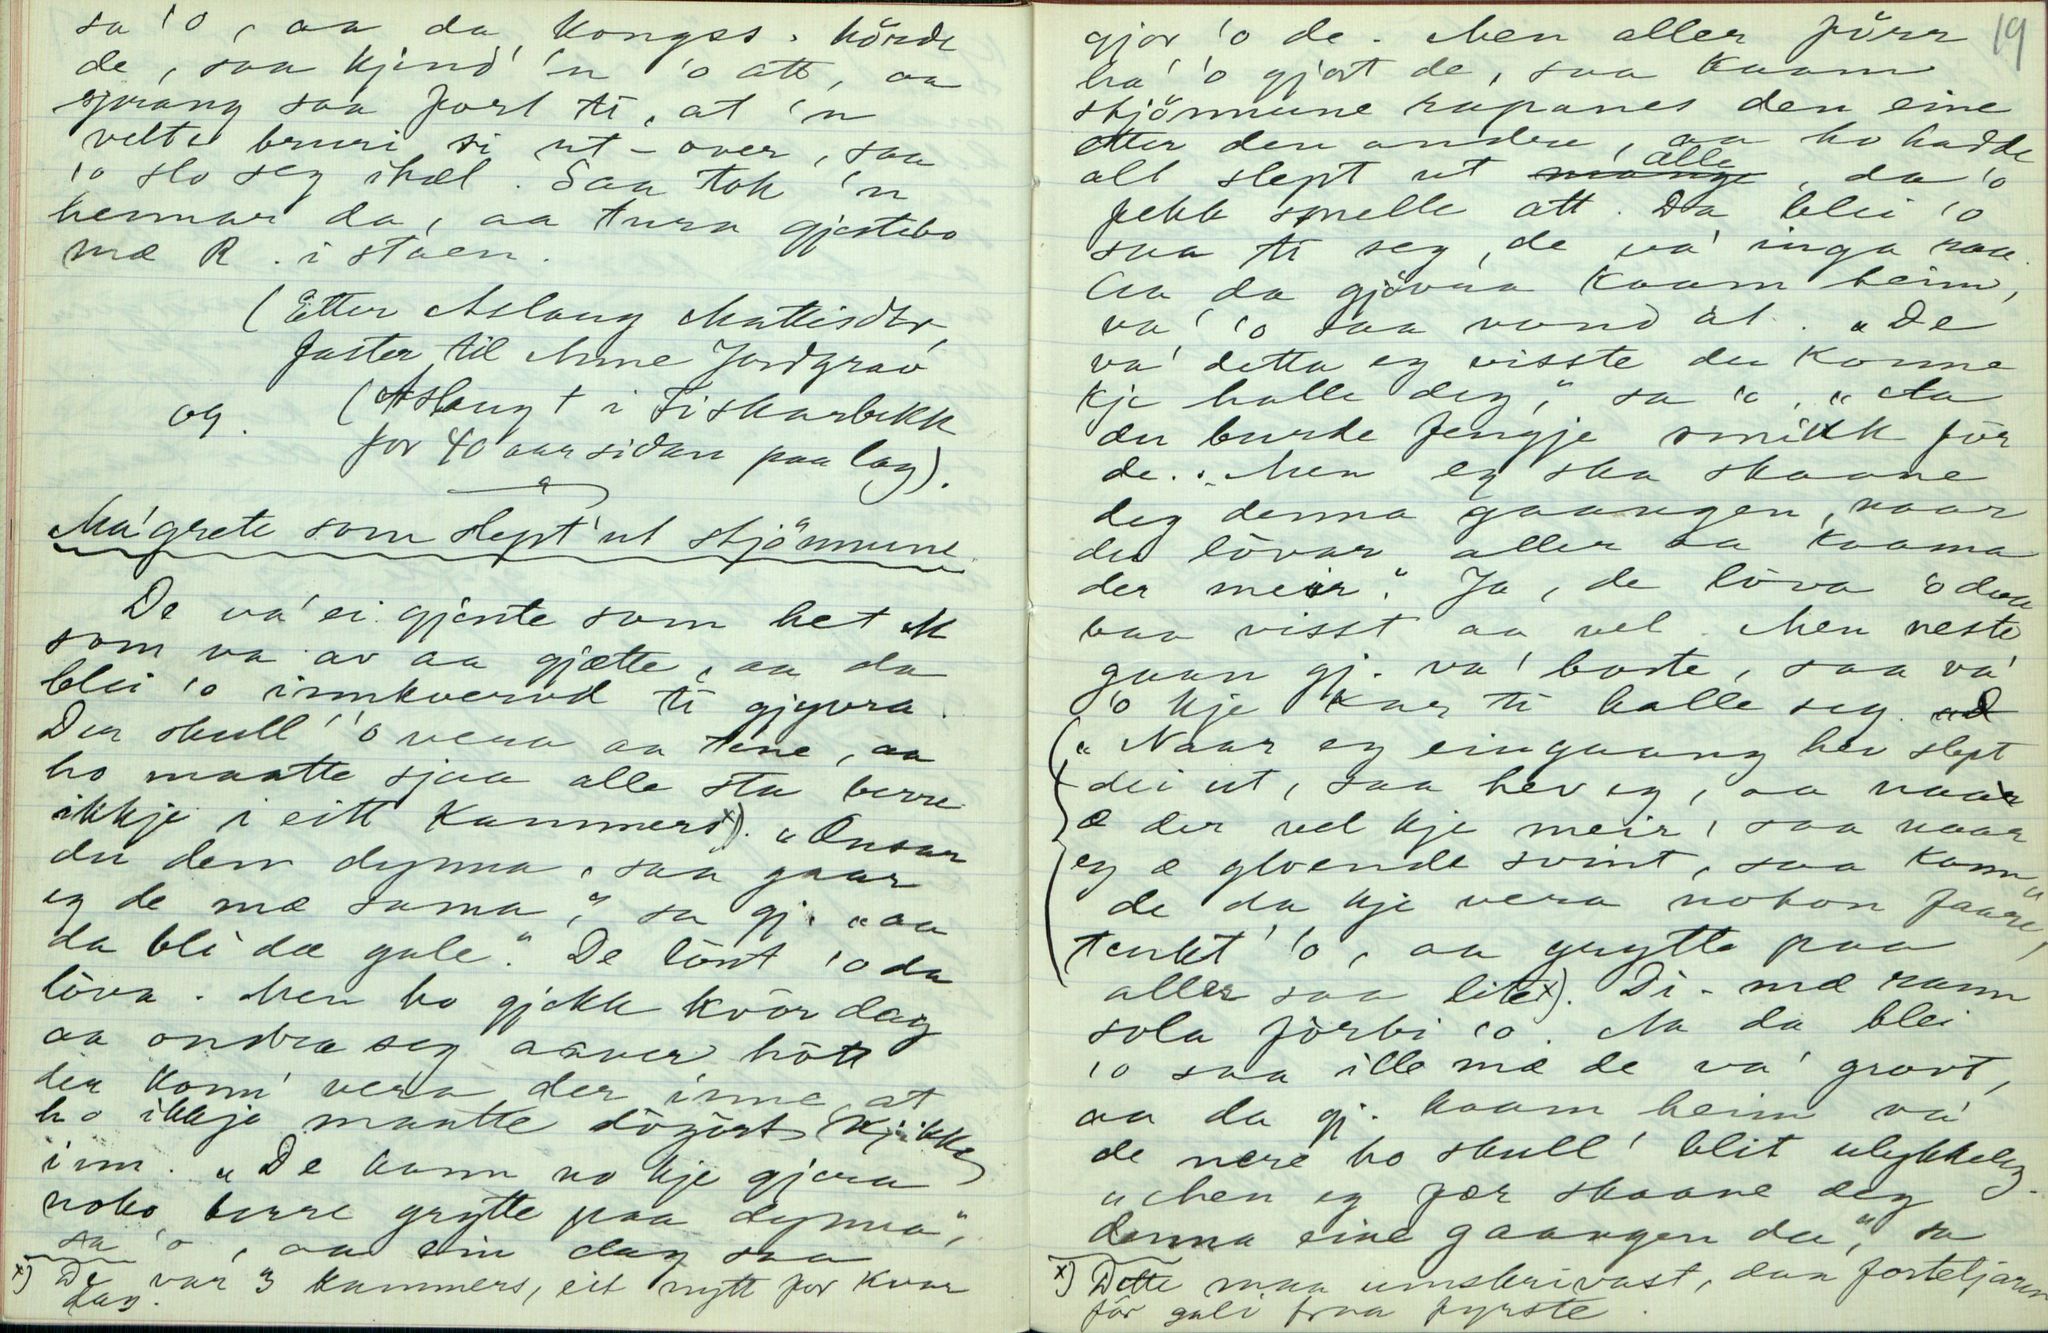 sa 'o, aa da kongss. hörde
de, saa kjend' 'n 'o att, aa
sprang saa fort ti, at 'n
velte bruri si ut-over, saa
'o slo seg ihæl. Saa tok 'n
hennar da, aa tura gjestebo
mæ R. i staen.
(Etter Aslaug Mattisdtr,
faster til Anne Jordgrav
og. (Aslaug † i Fiskarbekk
for 40 aar sidan paa lag).
Ma'grete som slept' ut stjönnune.
De va' ei gjente som het M
som va av aa gjætte, aa da
blei 'o innkvervd ti gjyvra.
Der skull' 'o vera aa tene, aa
ho maatte sjaa alle sta berre
ikkje i eitt kammers x). "Ansar
du den dynna, saa gaar
eg de mæ sama," sa gj. "aa
da bli dæ gale." De lönt 'o da
löva. Men ho gjekk kvör dag
aa ondra seg aaver hött
der konn' vera der inne, at
ho ikkje maatte dögöst kjikke
inn. "De kann no kje gjera
noko, berre grytte paa dynna",
sa 'o, aa ein dag saa
x) De var 3 kammers, eit nytt for kvar
dag.
19
gjor 'o de. Men aller förr
ha' 'o gjort de, saa kaam
stjönnune rapanes den eine
etter den andre, aa ho hadde
alle
alt slept ut mange, da 'o
fekk smelle att. Da blei 'o
saa ti seg, de va' inga raa.
Aa da gjövra kaam heim,
va' 'o saa vond at. "De
va' detta eg visste du konne
kje halle deg," sa 'o, "Aa
du burde fengje smikk för
de. Men eg ska skaane
deg denna gaangen, naar
du lövar aller aa kaama
der meir." Ja, de löva 'o daa
baa visst aa vel. Men neste
gaan gj. va' borte, saa va'
'o kje kar ti halle seg.
"Naar eg eingaang hev slept
dei ut, saa hev eg, aa naar
æ der vel kje meir, saa naar
eg æ gloende svint, saa kann
de da kje vera nokon faare,"
tenkt' 'o, aa grytte paa
aller saa lite x). Di-mæ rann
sola förbi 'o. Aa da blei
'o saa ille mæ de va' gront,
aa da gj. kaam heim va'
de nere ho skull' blit ulykkeleg.
"Men eg fær skaane deg
denna eine gaangen da," sa
x) Dette maa umskrivast, daa forteljaren
för gali fraa fyrste.